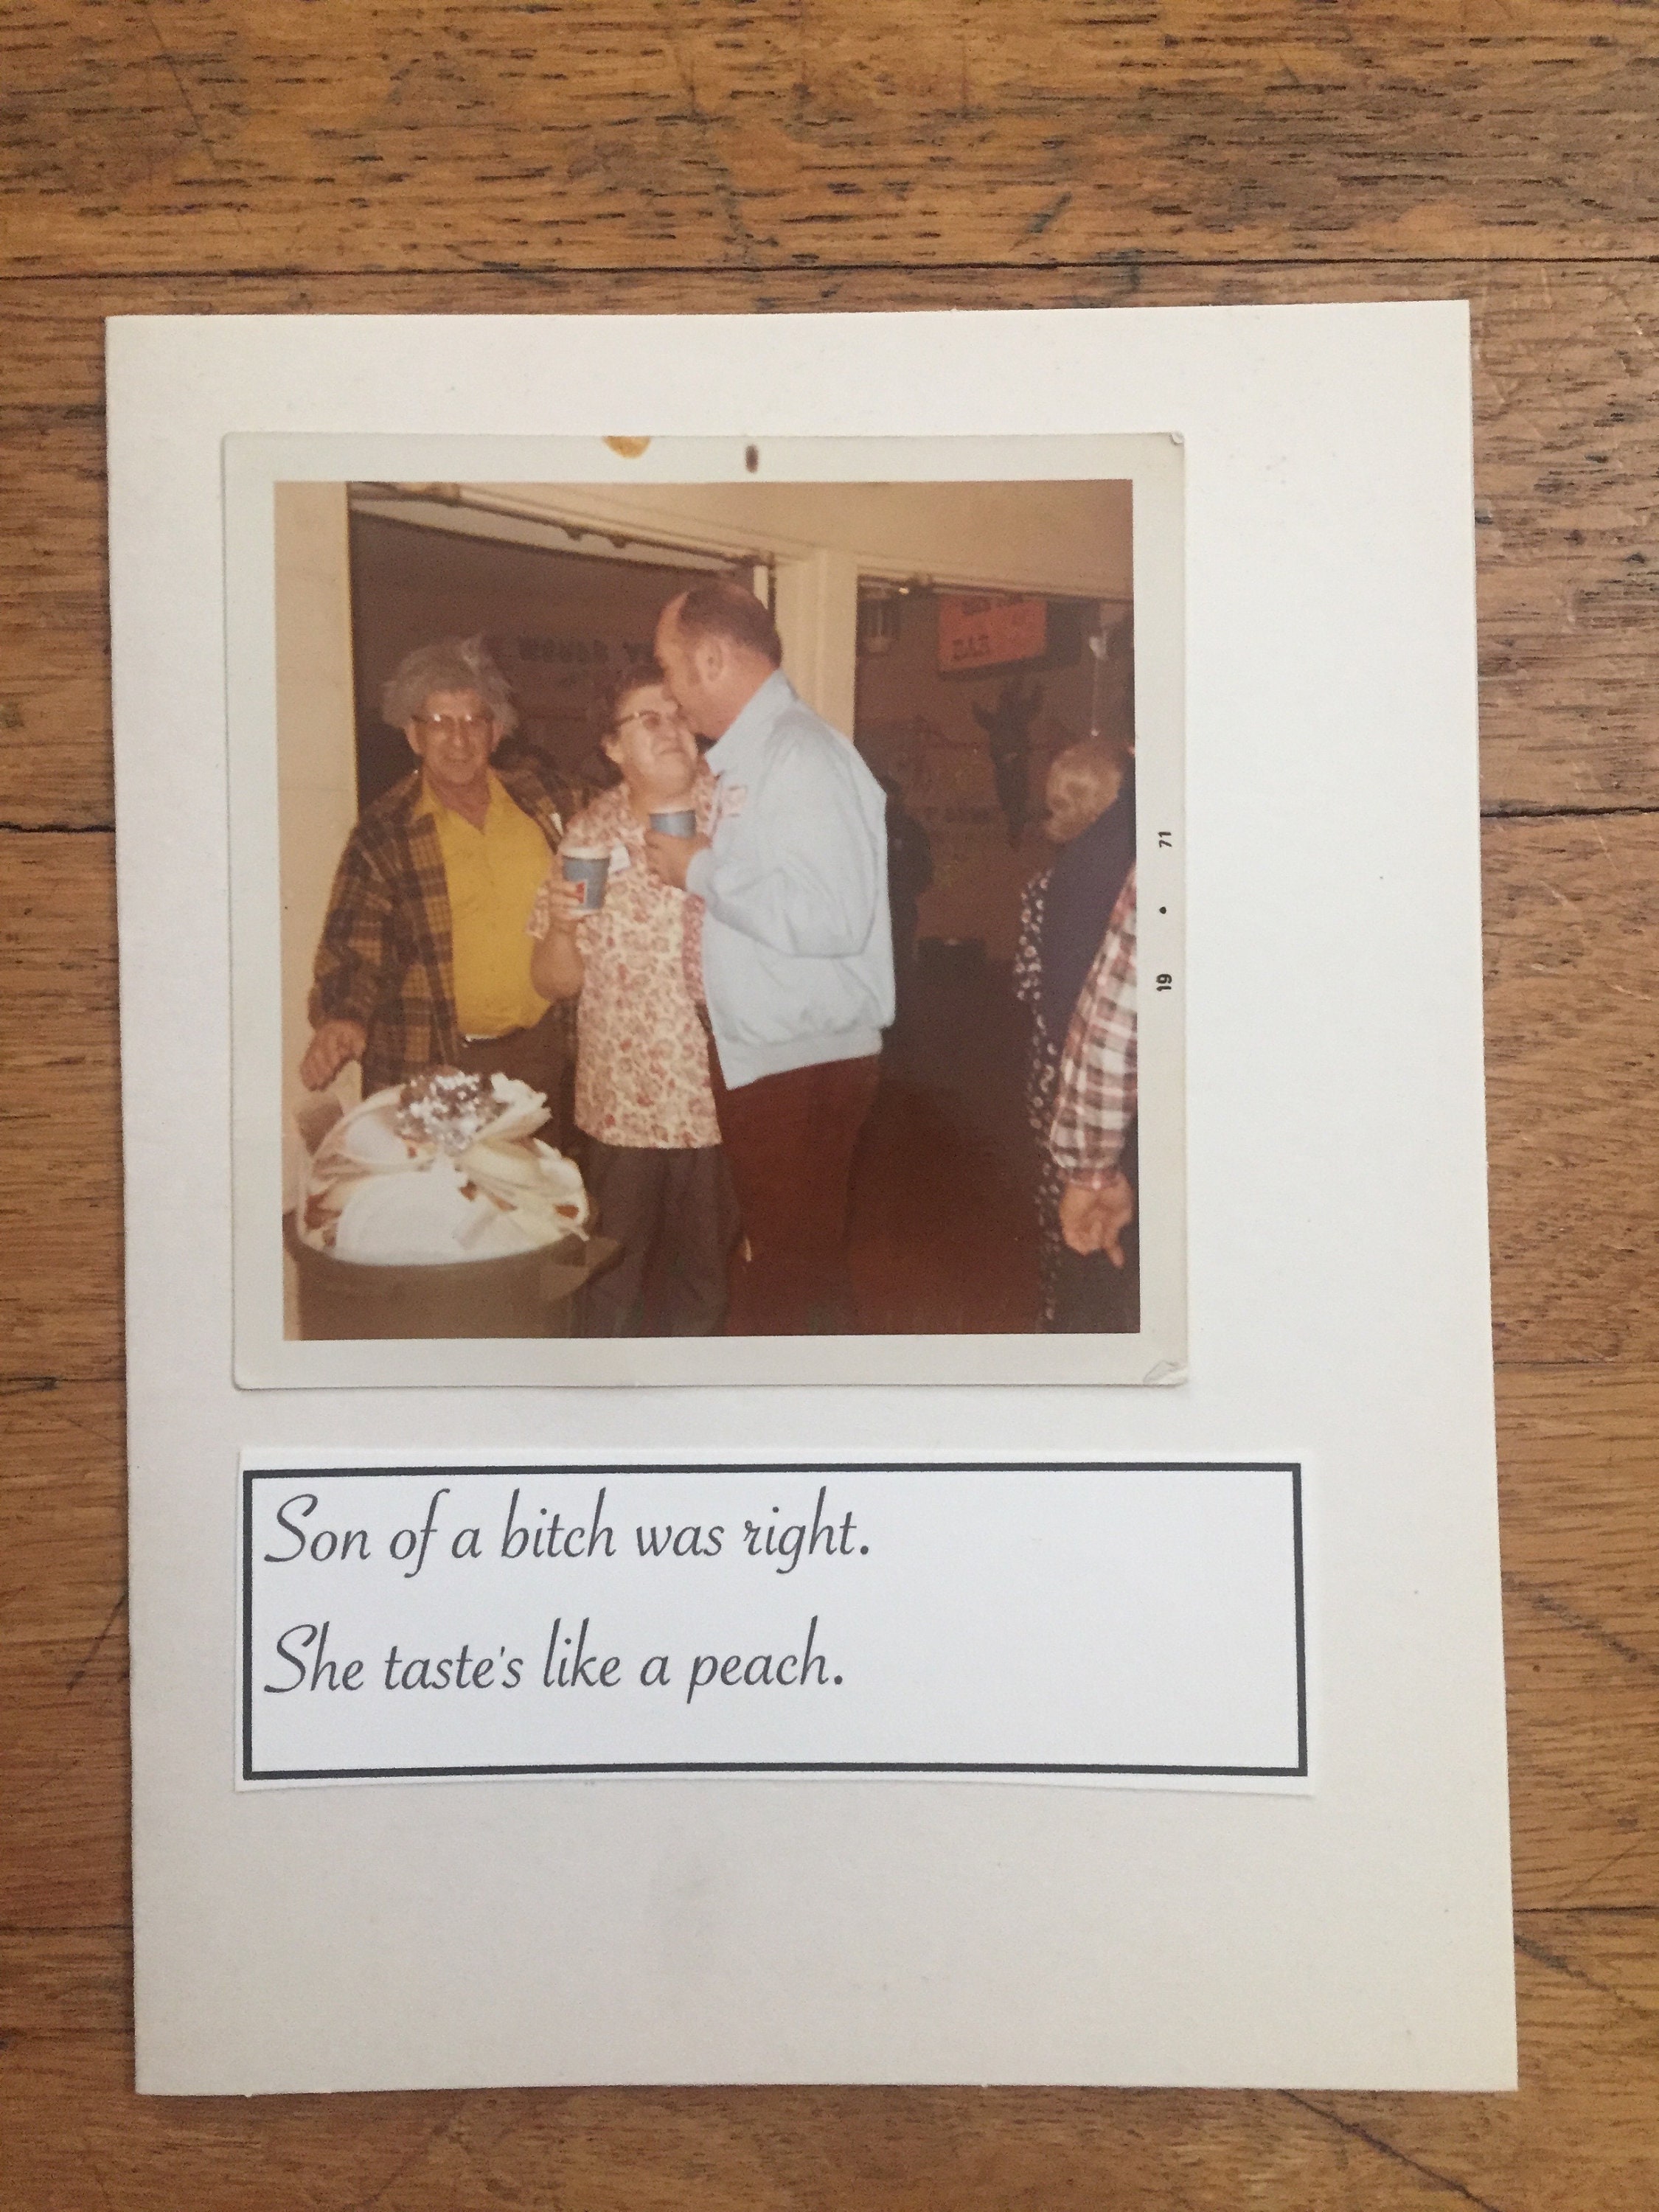 BAR
19 • 71
Son of a bitch was right.
She taste's like a peach.